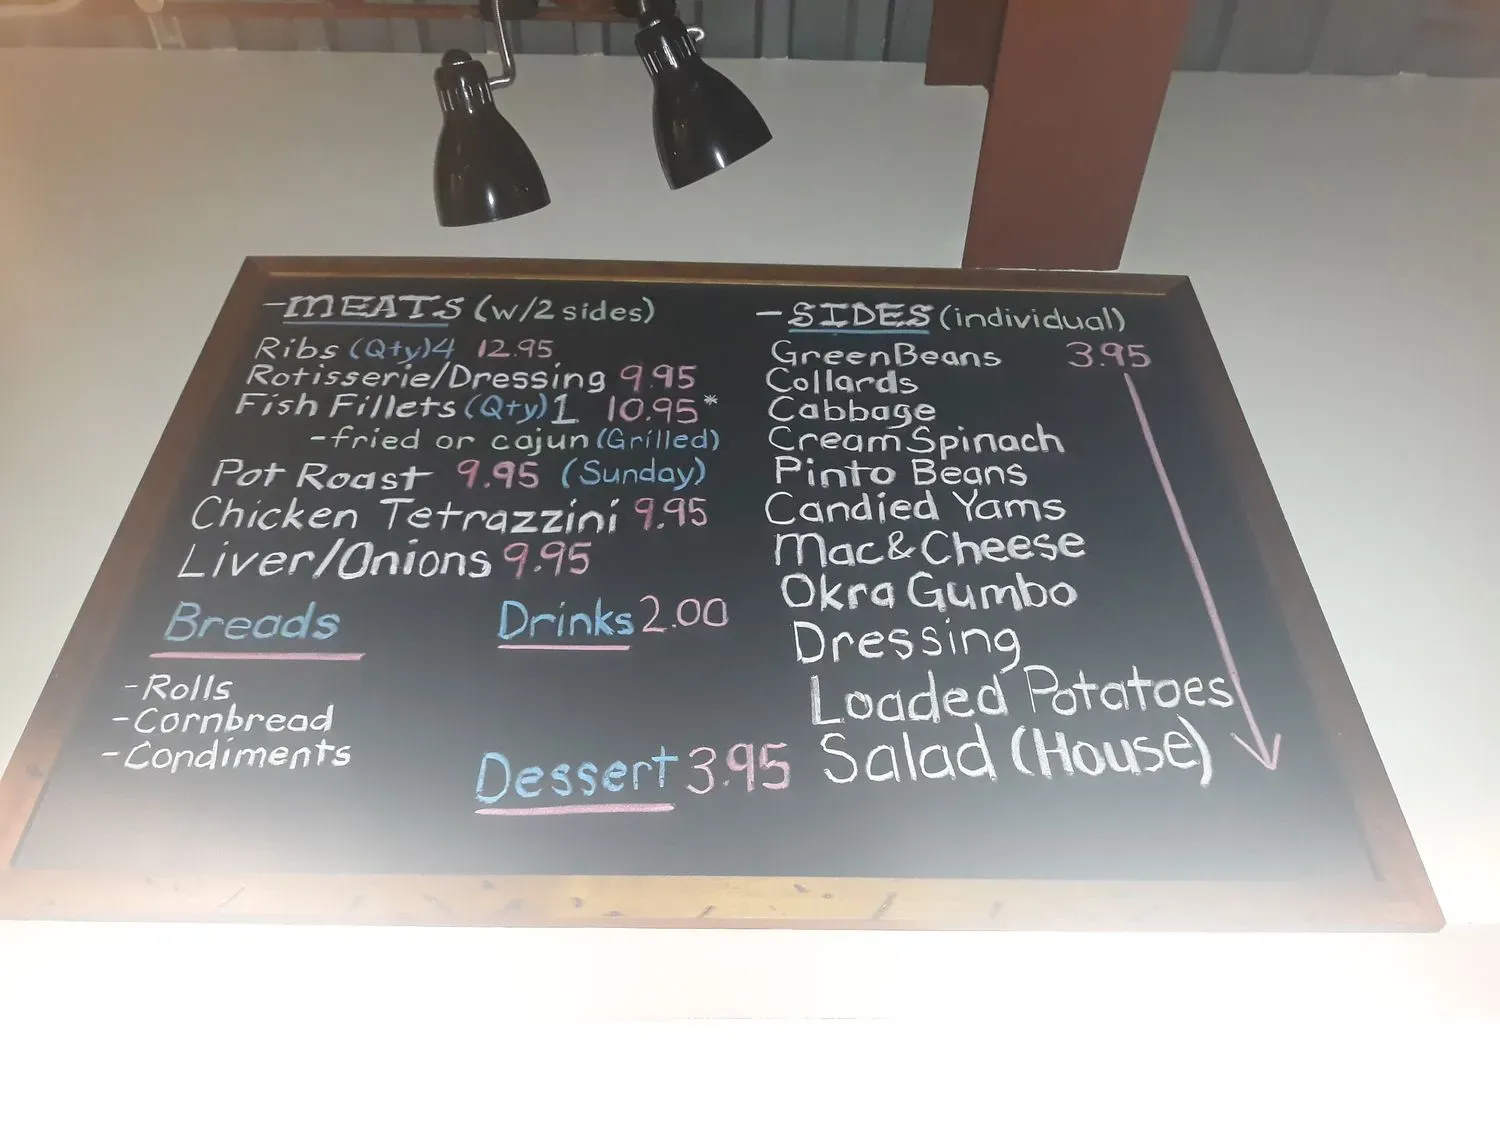 -MEATS (w/2 sides)
Ribs (Qty)4 12.95
Rotisserie/Dressing 9.95
Fish Fillets (Qty)1 10.95*
-fried or cajun (Grilled)
Pot Roast 9.95 (Sunday)
Chicken Tetrazzini 9.95
Liver/Onions 9.95
Breads
-Rolls
-Cornbread
-Condiments
Drinks 2.00
Dessert 3.95
-SIDES (individual)
Green Beans 3.95
Collards
Cabbage
Cream Spinach
Pinto Beans
Candied Yams
Mac & Cheese
Okra Gumbo
Dressing
Loaded Potatoes
Salad (House)